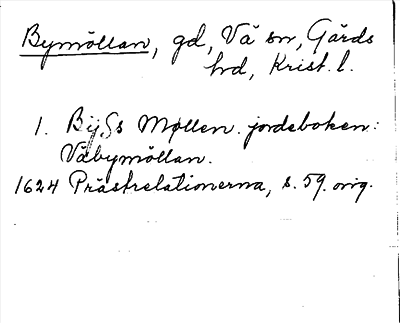 Bymöllan, gd, Vä sn, Gärds
hrd, Krist. l.
1. Bijs Møllen. jordeboken:
Väbymöllan.
1624 Prästrelationerna, s. 59. orig.